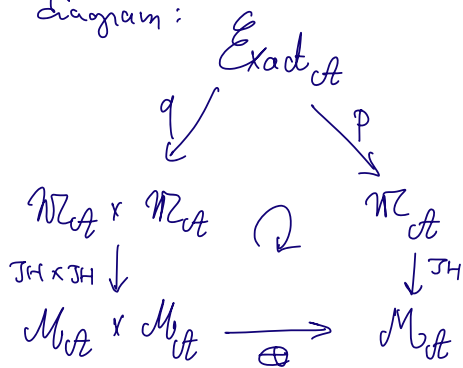 diagram :
Exact_𝒜
q p
𝔐_𝒜 × 𝔐_𝒜 𝔐_𝒜
JH × JH JH
ℳ_𝒜 × ℳ_𝒜 ℳ_𝒜
⊕